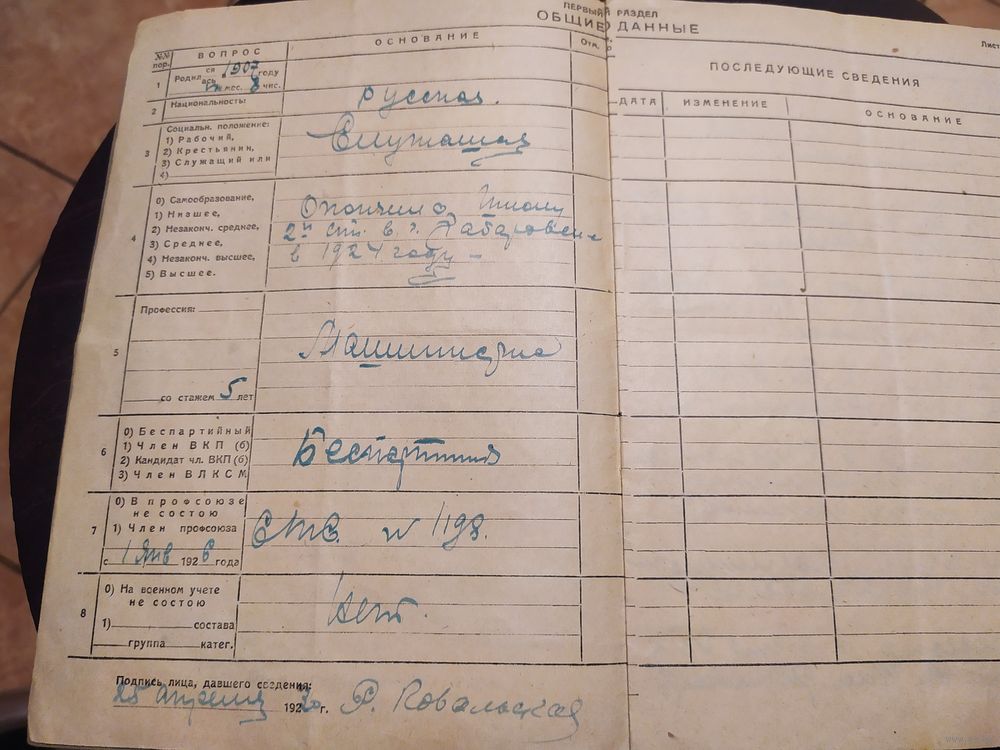 ПЕРВЫЙ РАЗДЕЛ
ОБЩИЕ ДАННЫЕ
Лист
№№ пор.
ВОПРОС
ОСНОВАНИЕ
Отм.
ПОСЛЕДУЮЩИЕ СВЕДЕНИЯ
ДАТА
ИЗМЕНЕНИЕ
ОСНОВАНИЕ
1
Родился 1907 году
ась мес. 8 чис.
2
Национальность:
русская.
3
Социальн. положение:
1) Рабочий,
2) Крестьянин,
3) Служащий или
4)
Служащая
4
0) Самообразование,
1) Низшее,
2) Незаконч. среднее,
3) Среднее,
4) Незаконч. высшее,
5) Высшее.
Окончила школу
2й ст. в г. Хабаровске
в 1924 году
5
Профессия:
со стажем 5 лет
Машинистка
6
0) Беспартийный
1) Член ВКП (б)
2) Кандидат чл. ВКП (б)
3) Член ВЛКСМ
Беспартийная
7
0) В профсоюзе
не состою
1) Член профсоюза
с 1 Янв 1926 года
№ 1198.
8
0) На военном учете
не состою
1) состава
группа катег.
Нет.
Подпись лица, давшего сведения:
25 апреля 1930 г. Р. Ковальская